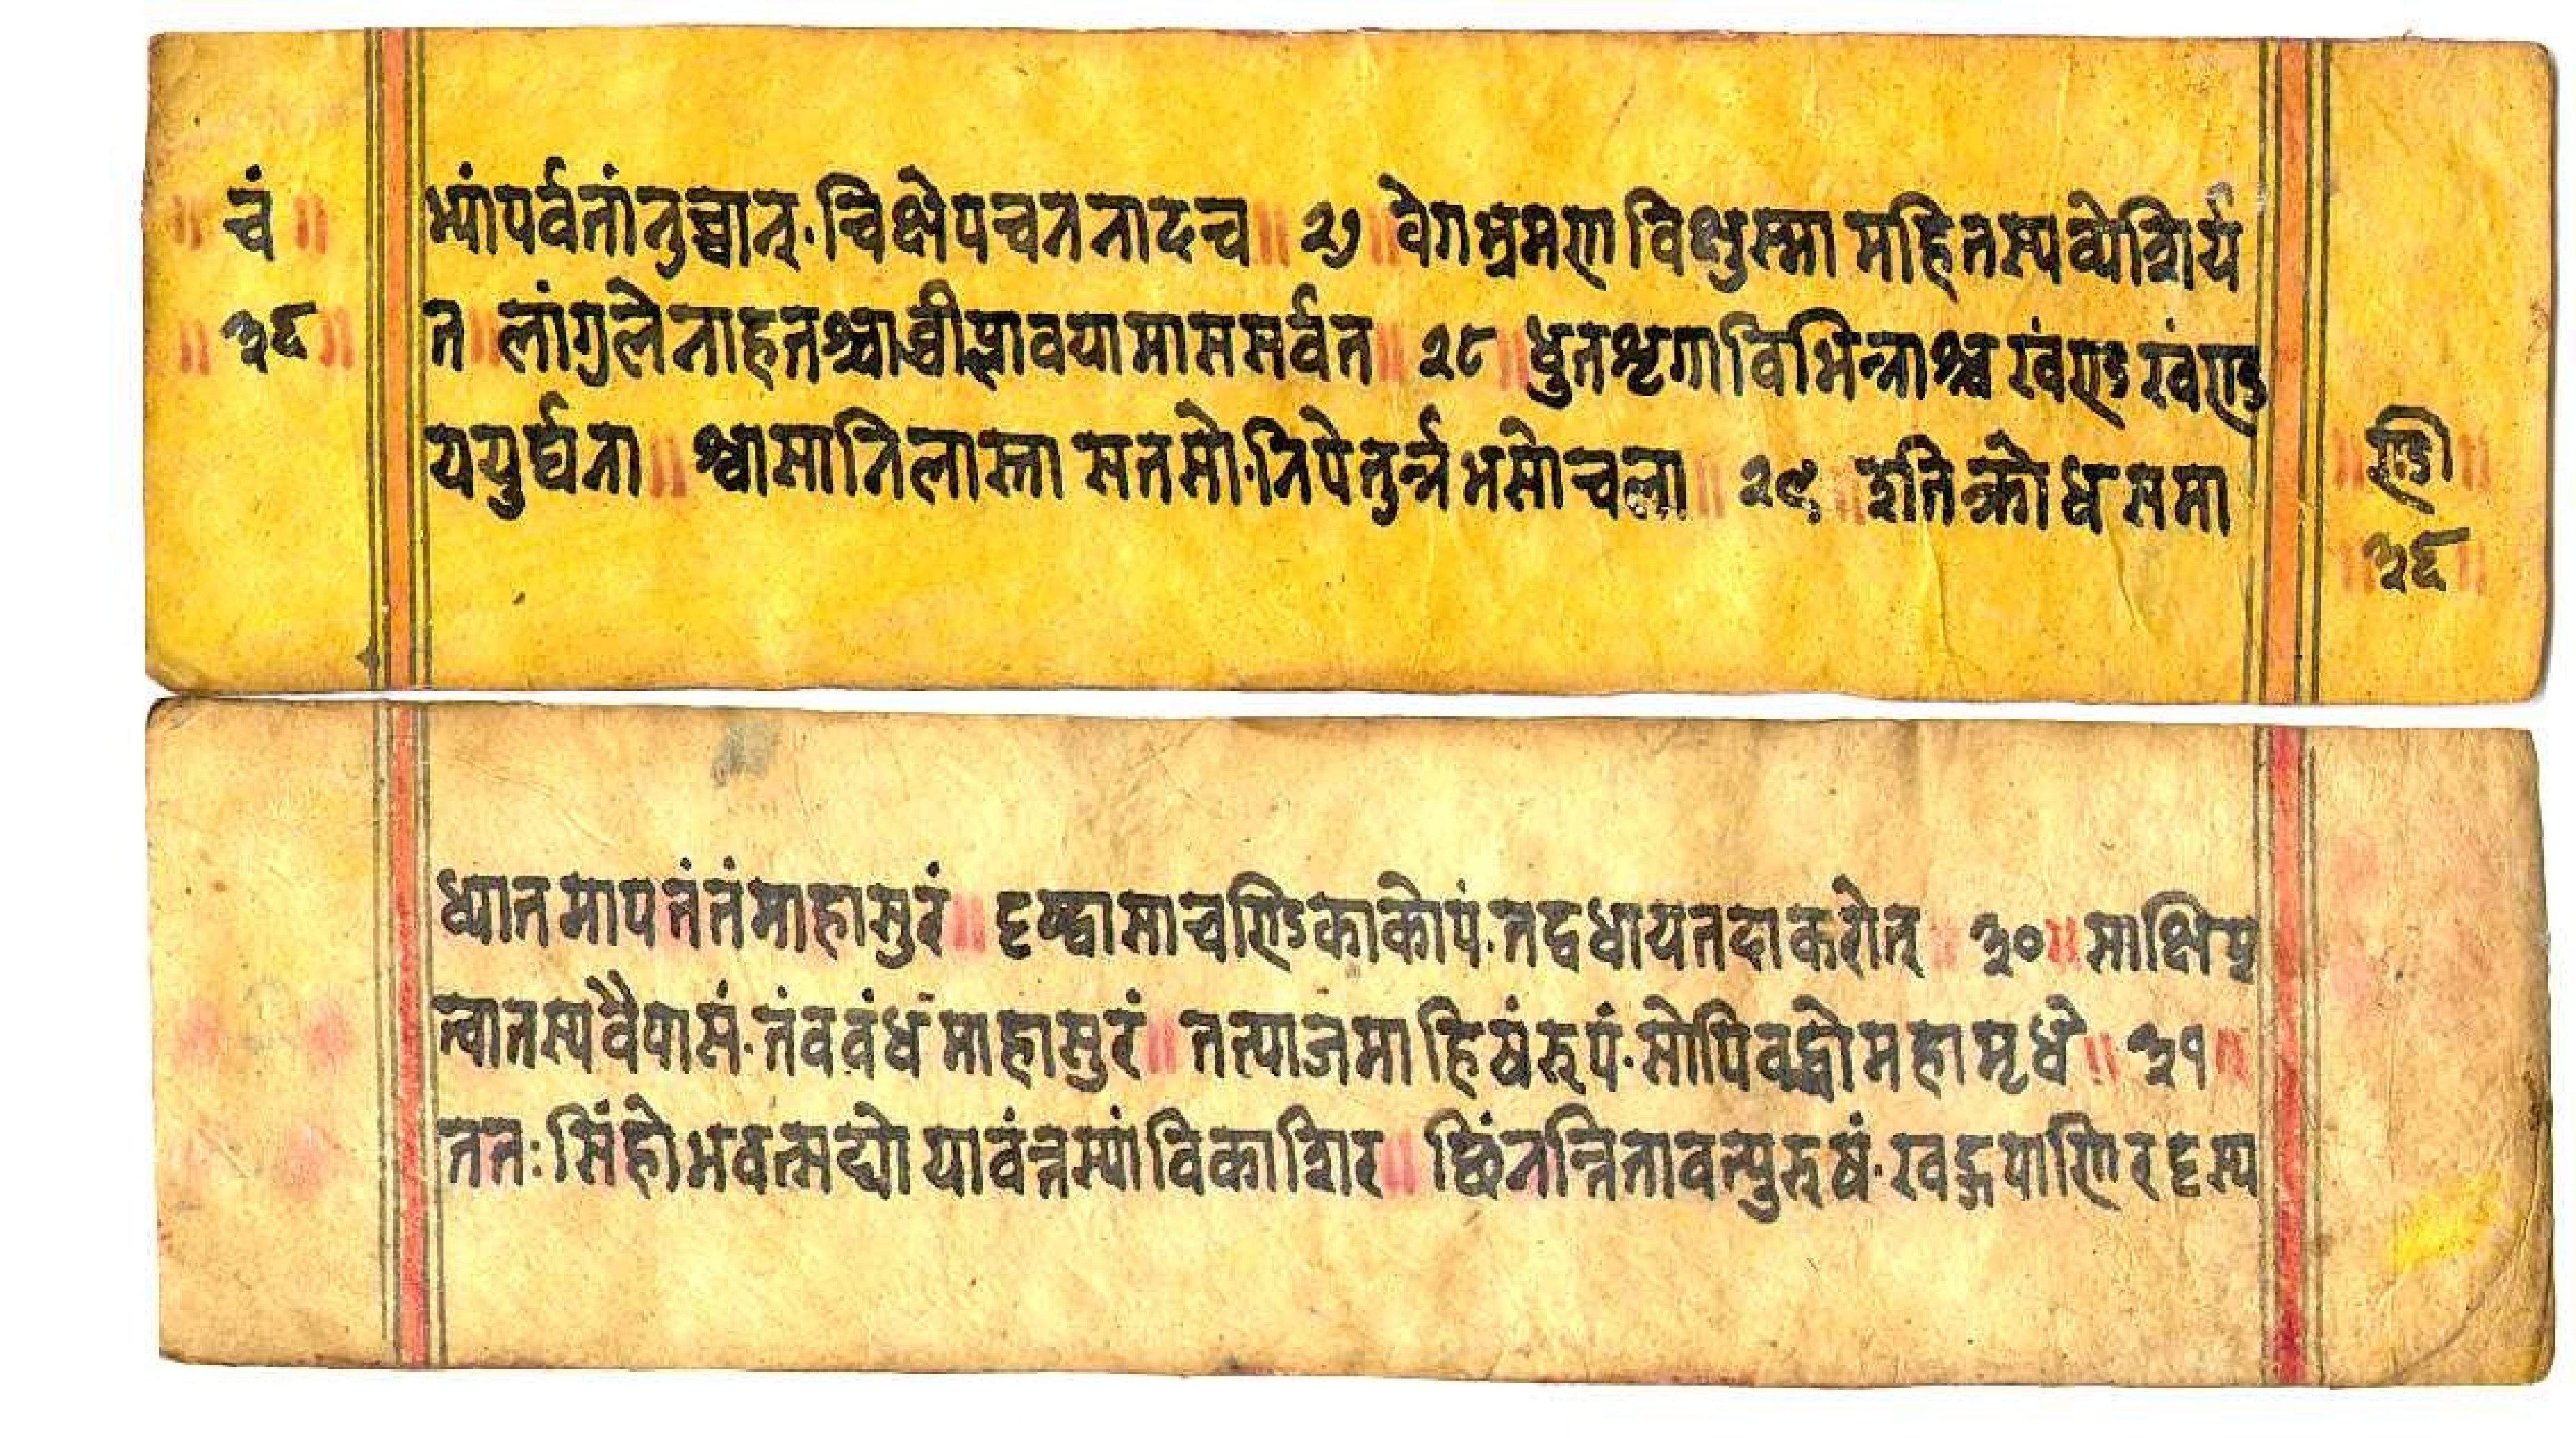 ॥ चं ॥
॥ ३६ ॥
भ्यांपर्वतांनुच्चान्·चिक्षेपचननादच ॥ २७ ॥ वेगभ्रमणविक्षुस्मा महितस्यव्येशिर्य
त ॥ लांगुलेनाहतश्चाब्धीप्लावयामाससर्वत ॥ २८ ॥ धुतशृगाविभिन्नाश्च खंण्ड खंण्ड
ययुर्घना ॥ श्वासानिलास्ता सतसो·निपेतुर्न्नभसोचला ॥ २९ ॥ इतिक्रोधसमा
॥ ण्डी ॥
॥ ३६ ॥
ध्यातमापतंतंमाहासुरं ॥ दृष्ट्वासाचण्डिकाकोपं·तद्वधायतदाकरोत् ॥ ३० ॥ साक्षिप्
त्वातस्यवैपासं·तंववंधमाहासुरं ॥ तत्याजमाहिषंरुपं·सोपिवद्धोमहामृधे ॥ ३१ ॥
ततः सिंहोभवत्सद्यो यावंत्तस्यांविकाशिर ॥ छिंनत्तितावत्पुरुषं·खड्गपाणिरदृस्य